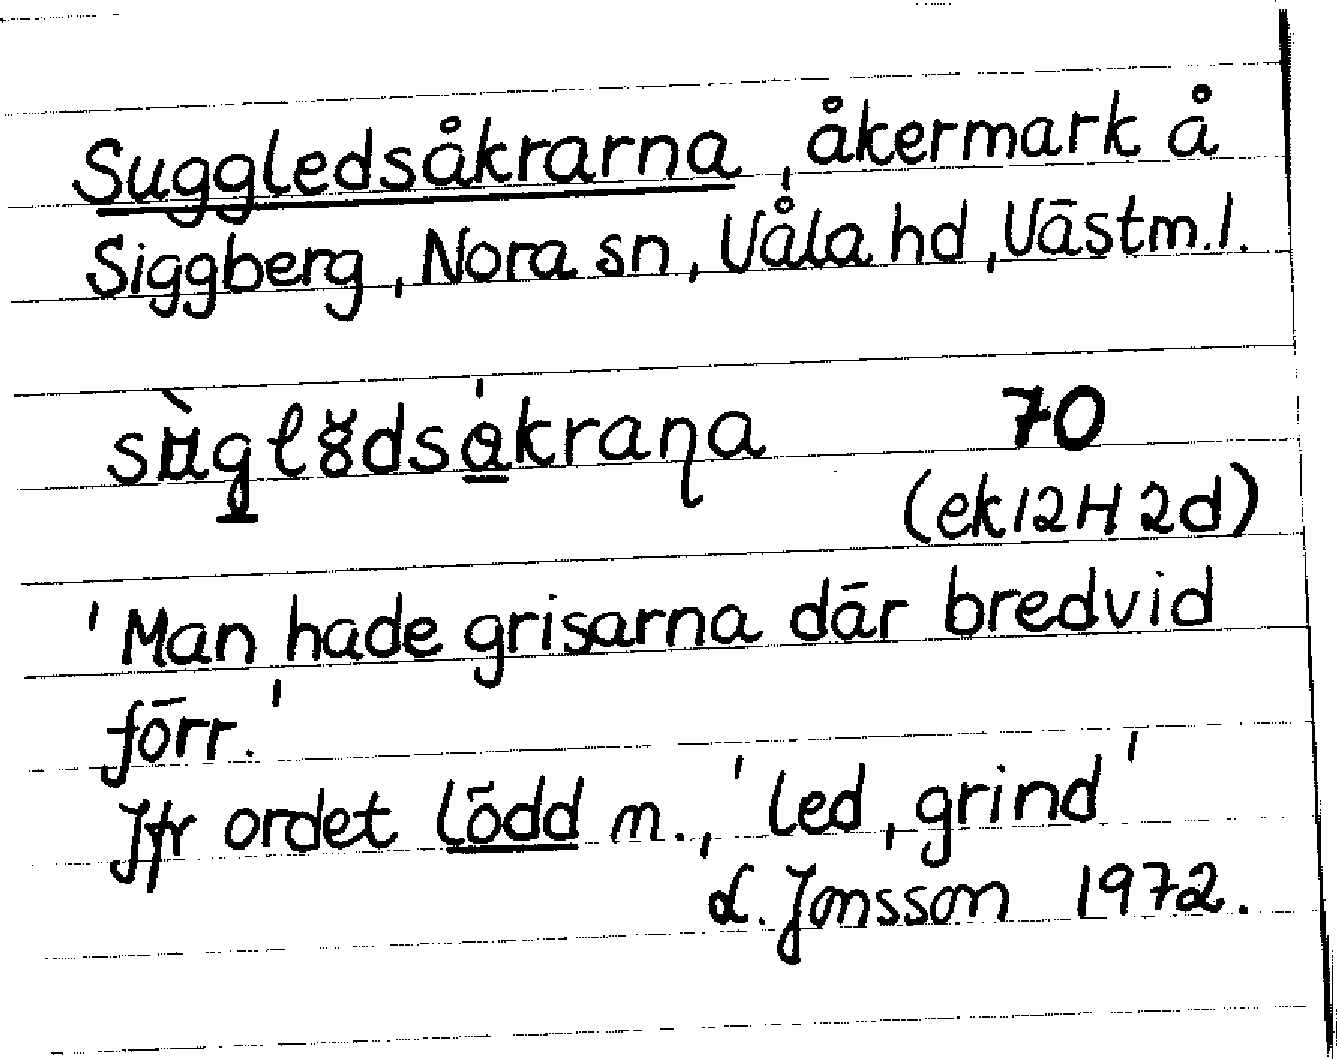 Suggledsåkrarna, åkermark å
Siggberg, Nora sn, Våla hd, Västm.l.
70
(ek 12H 2d)
'Man hade grisarna där bredvid
förr.'
Jfr ordet lödd m., 'led, grind'
L. Jonsson 1972.